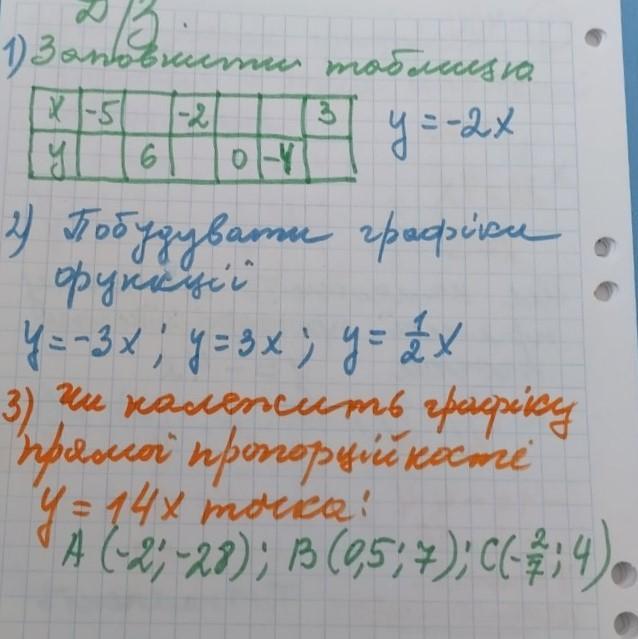 Д/З.
1) Заповнити таблицю
x -5 -2 3
y 6 0 -4
y = -2x
2) Побудувати графіки
функції
y = -3x ; y = 3x ; y = 1/2 x
3) Чи належить графіку
прямої пропорційності
y = 14x точка:
A (-2; -28) ; B (0,5; 7) ; C (-2/7 ; 4)